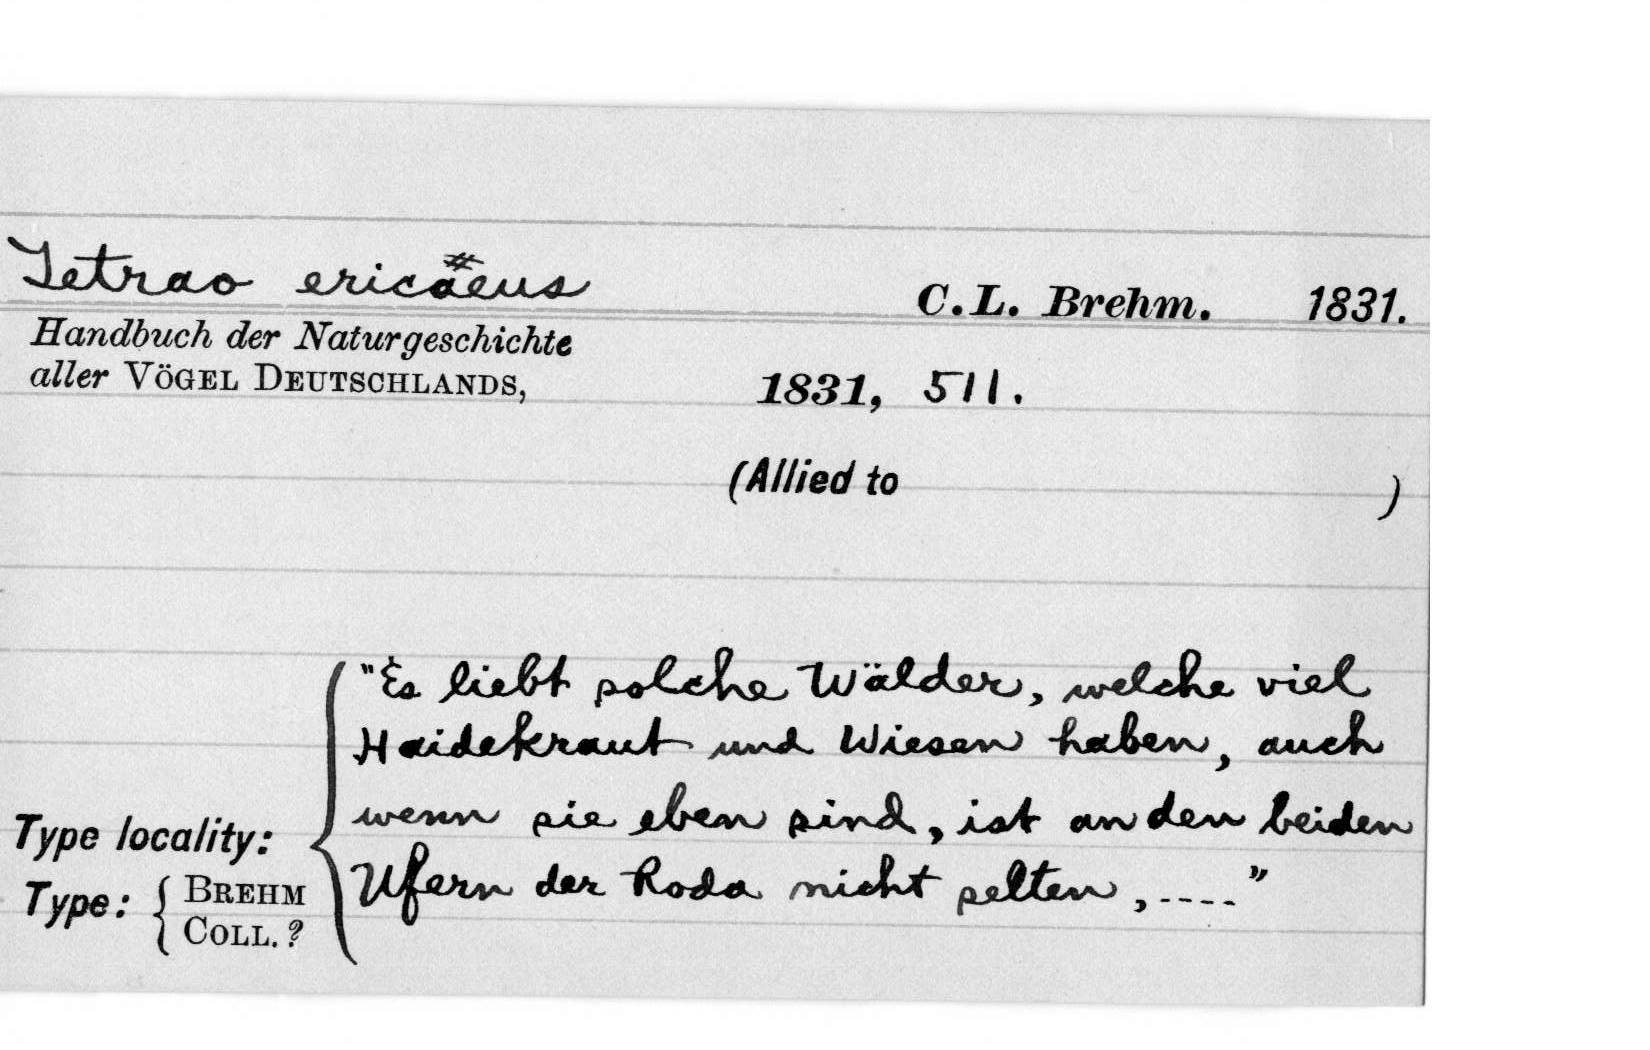 Tetrao ericaeus C.L. Brehm. 1831.
Handbuch der Naturgeschichte
aller VÖGEL DEUTSCHLANDS, 1831, 511.
(Allied to )
"Es liebt solche Wälder, welche viel
Haidekraut und Wiesen haben, auch
wenn sie eben sind, ist an den beiden
Ufern der Roda nicht selten, ...."
Type locality:
Type: { BREHM
COLL. ?